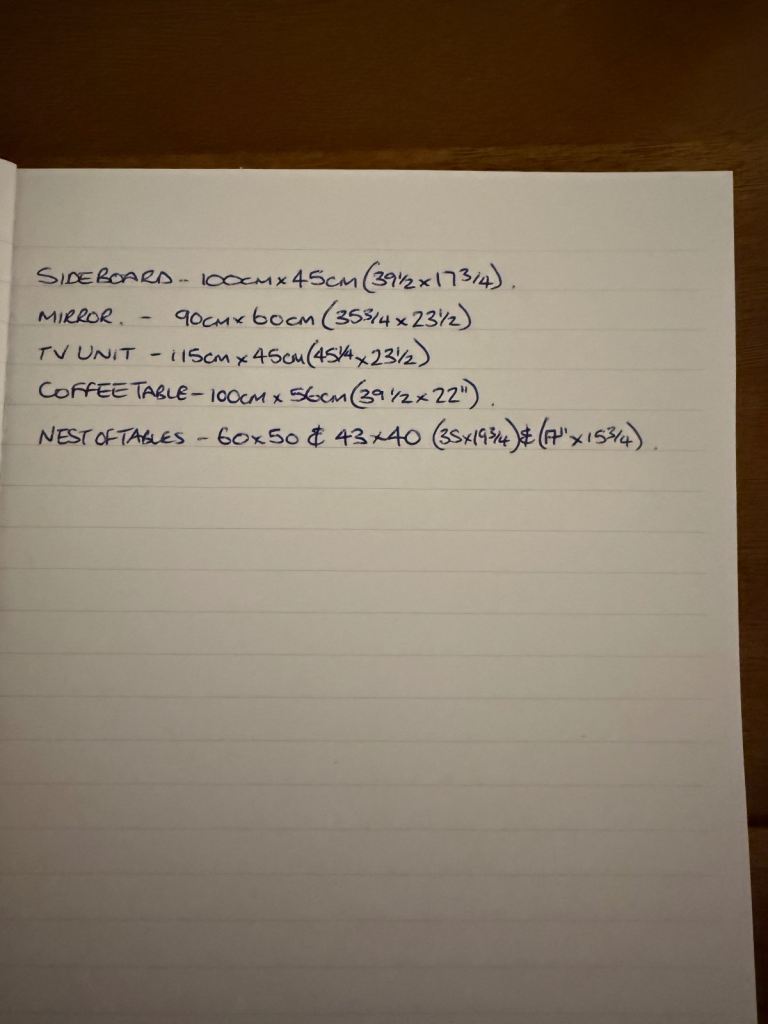 SIDEBOARD - 100CM x 45CM (39 1/2 x 17 3/4).
MIRROR. - 90CM x 60CM (35 3/4 x 23 1/2)
TV UNIT - 115CM x 45CM (45 1/4 x 23 1/2)
COFFEE TABLE - 100CM x 56CM (39 1/2 x 22").
NEST OF TABLES - 60x50 & 43x40 (35x19 3/4) & (17" x 15 3/4).